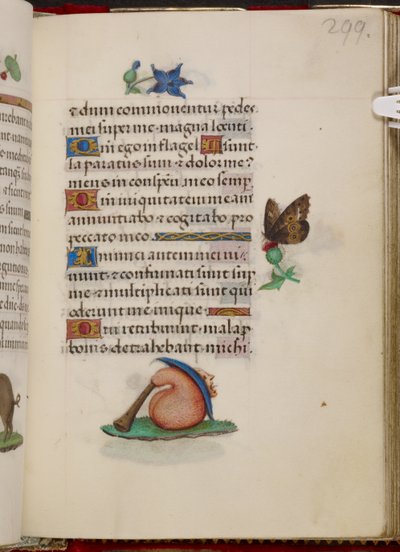 299.
⁊ dum commouentur pedes
mei super me magna locuti
Qm̄ ego in flagel sunt
la paratus sum ⁊ dolor me9
mens in conspectu meo semp
Qm̄ iniquitatem meam
annuntiabo ⁊ cogitabo pro
peccato meo
Inimici autem mei vi
uunt ⁊ confirmati sunt sup
me ⁊ multiplicati sunt qui
oderunt me inique
Qui retribuunt mala p
bonis detrahebant michi.